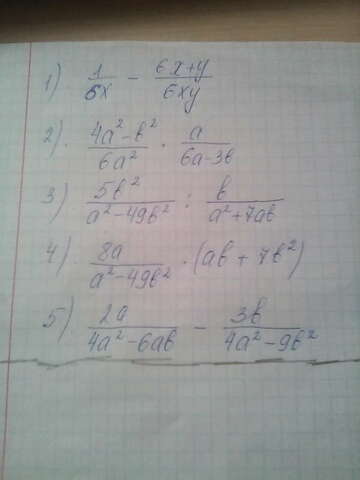 1). 1/6x - 6x+y/6xy
2). 4a²-b²/6a² · a/6a-3b
3) 5b²/a²-49b² : b/a²+7ab
4) 8a/a²-49b² · (ab + 7b²)
5) 2a/4a²-6ab - 3b/4a²-9b²